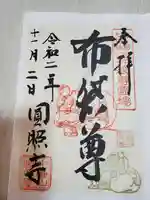 奉拝
布袋尊
令和二年
十一月二日
圓照寺